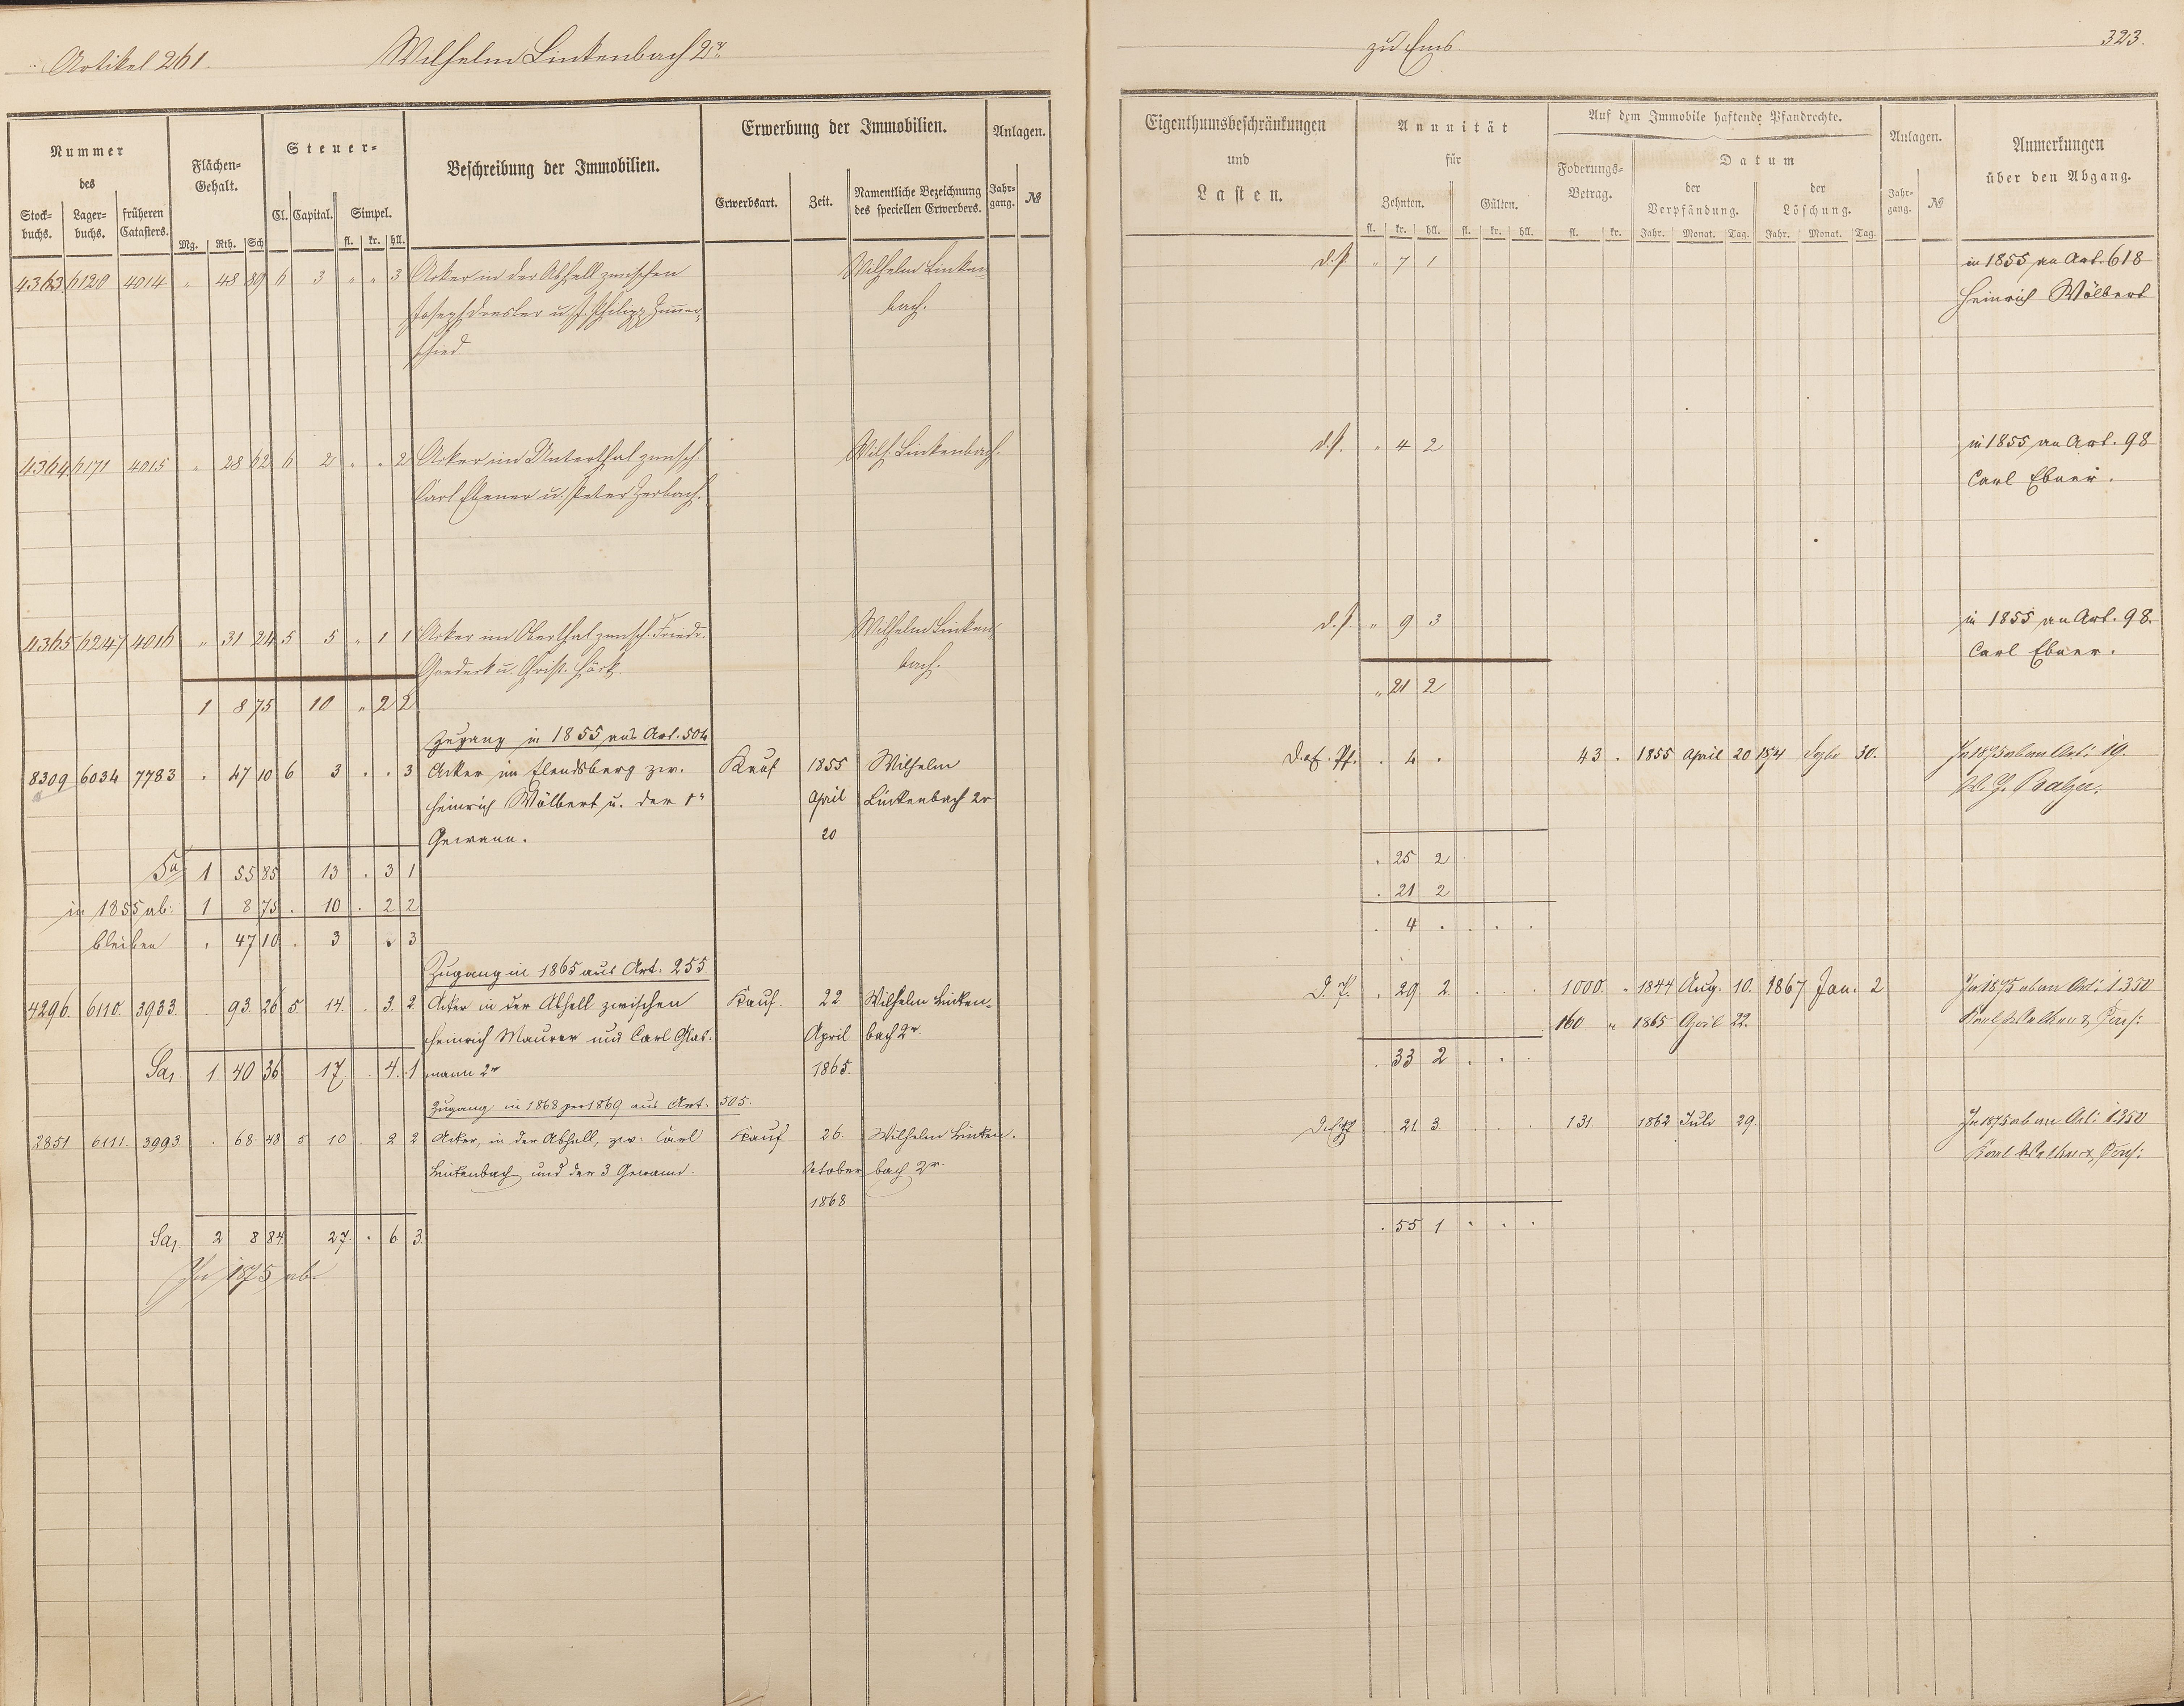 Artikel 261. Wilhelm Linkenbach 2r
zu Ems. 323.
Nummer des
Stock-buchs. Lager-buchs. früheren Catasters.
Flächen-Gehalt.
Mg. Rth. Sch
Steuer-
Cl. Capital. Simpel.
fl. kr. hll.
Beschreibung der Immobilien.
Erwerbung der Immobilien.
Erwerbsart. Zeit. Namentliche Bezeichnung des speciellen Erwerbers.
Anlagen.
Jahr-gang. №
Eigenthumsbeschränkungen
und
Lasten.
Annuität
für
Zehnten. Gülten.
fl. kr. hll. fl. kr. hll.
Auf dem Immobile haftende Pfandrechte.
Foderungs-Betrag.
fl. kr.
Datum
der Verpfändung. der Löschung.
Jahr. Monat. Tag. Jahr. Monat. Tag.
Anlagen.
Jahr-gang. №
Anmerkungen
über den Abgang.
4363. 6120 4014 " 48 89 6 3 " " 3 Acker in der Abhell zwischen Wilhelm Linken- d.P. " 7 1 in 1855 an Art. 618
Joseph Dresler u. J. Philipp Zimer- bach. Heinrich Wölbert
schied
4364 6171 4015 " 28 62 6 2 " " 2 Acker im Unterthal zwisch Wilh. Linkenbach. d.P. " 4 2 in 1855 an Art. 98
Carl Ebener u. Peter Zerbach. Carl Ebner.
4365 6247 4016 " 31 24 5 5 " 1 1 Acker im Oberthal zwisch. Friedr. Wilhelm Linken- d.P. " 9 3 in 1855 an Art. 98.
u. Christ. bach. Carl Ebner.
1 8 75 10 " 2 2 " 21 2
Zugang in 1855 aus Art. 504
8309 6034 7783 . 47 10 6 3 . . 3 Acker im Elendsberg zw. Kauf 1855 Wilhelm . 4 . 43 . 1855 April 20 1871 30. In 1875 ab an Art: 19.
Heinrich Wölbert u. der 1n April Linkenbach 2r
Gewann. 20
Sa 1 55 85 13 . 3 1 . 25 2
in 1855 ab: 1 8 75 . 10 . 2 2 . 21 2
bleiben . 47 10 . 3 . 3 . 4 . . . .
Zugang in 1865 aus Art. 255.
4296. 6110. 3933. 93. 26 5 14. . 3. 2. Acker in der Abhell zwischen Kauf. 22 Wilhelm Linken- D. P. . 29. 2. . . . 1000. " 1844 Aug. 10. 1867 Jan. 2 In 1875 ab an Art: 1350
Heinrich Maurer und Carl Glas- April bach 2r. 160 " 1865 April 22.
Sa. 1 40 36 17 . 4. 1 mann 2r 1865. . 33 2 . . .
Zugang in 1868 per 1869 aus Art. 505.
2851 6111. 3993 . 68 48 5 10 . 2 2 Acker, in der Abhell, zw. Carl Kauf 26. Wilhelm Linken- . 21. 3 . . . 131. 1862 Juli 29. In 1875 ab an Art: 1350
Linkenbach und der 3 Gewann. October bach 2r.
1868
Sa. 2 8 84. 27. . 6 3. . 55 1 . . .
In 1875 ab.